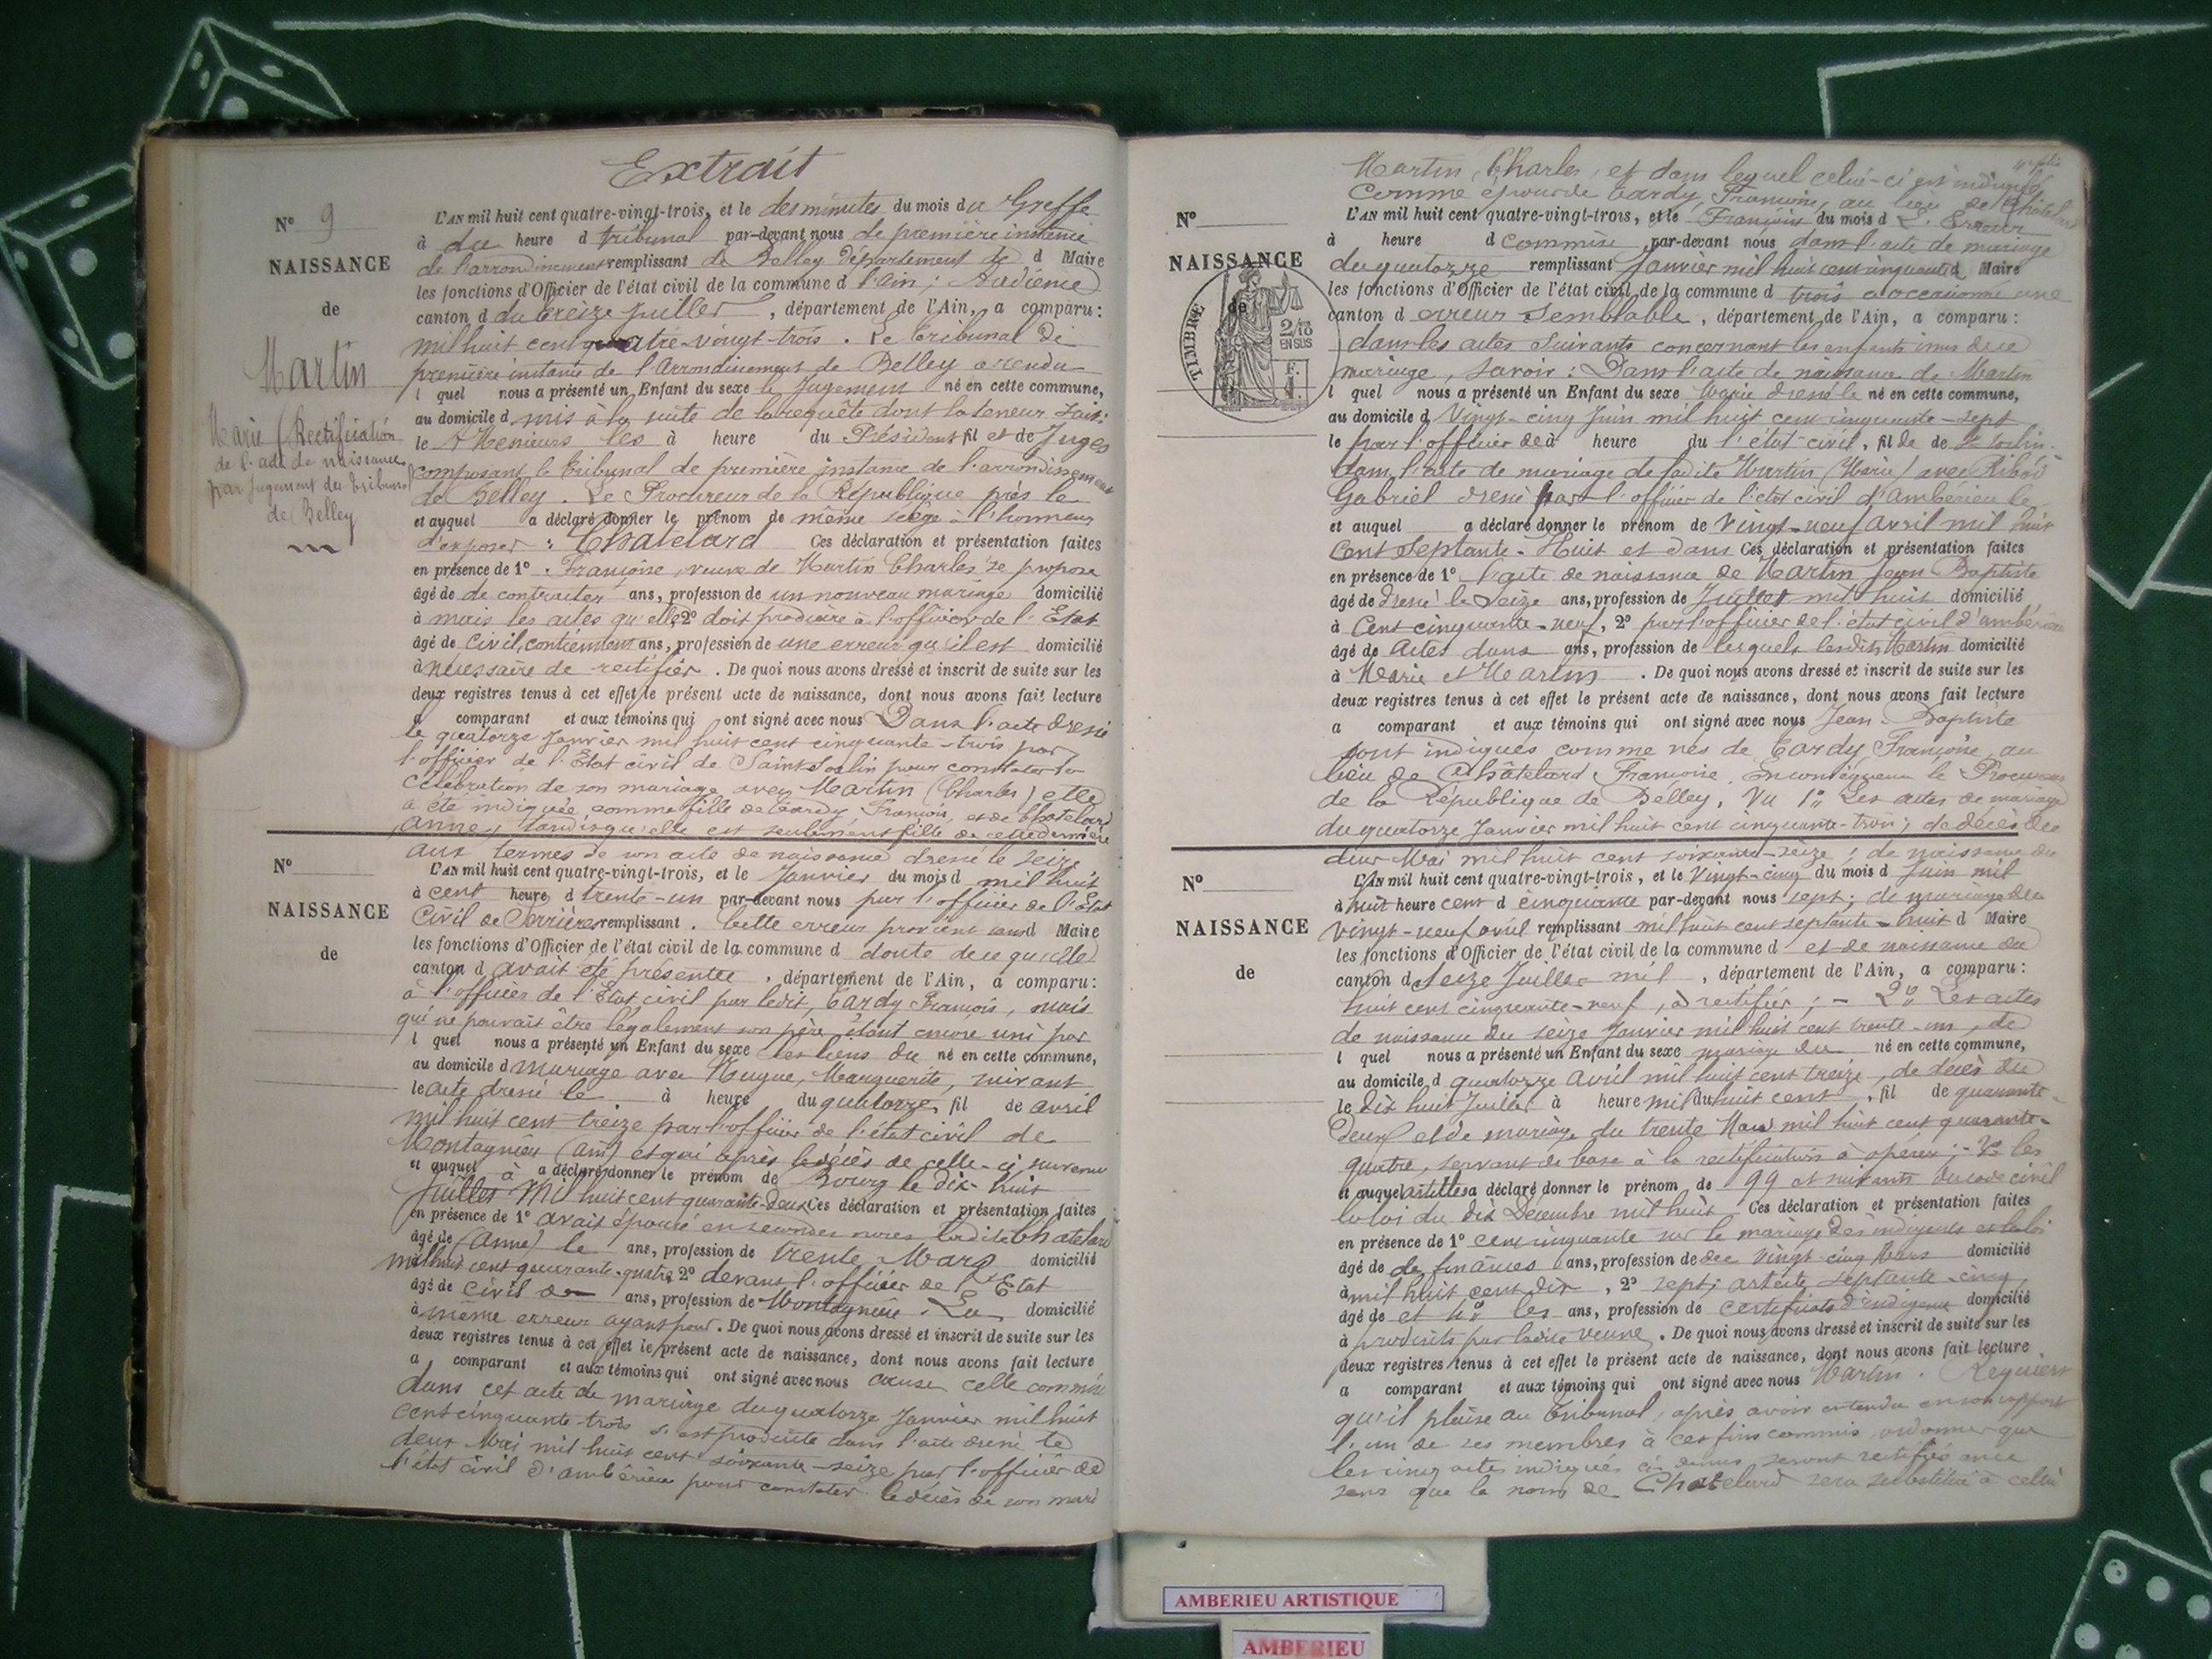 Extrait
N° 9
NAISSANCE
de
Martin
Marie (Rectification
de l'acte de naissance
par jugement du tribunal
de Belley
L'AN mil huit cent quatre-vingt-trois, et le des minutes du mois du Greffe
à du heure d tribunal par-devant nous de première instance
de l'arrondissement remplissant de Belley département de d Maire
les fonctions d'Officier de l'état civil de la commune d l'ain ; Audience
canton d du treize Juillet , département de l'Ain, a comparu :
mil huit cent quatre-vingt-trois . Le tribunal de
première instance de l'Arrondissement de Belley a rendu
l quel nous a présenté un Enfant du sexe le Jugement né en cette commune,
au domicile d mis à la suite de la requête dont la teneur suit :
le A Messieurs les à heure du Président fil et de Juges
composant le tribunal de première instance de l'arrondissement
de Belley . Le Procureur de la République près le
et auquel a déclaré donner le prénom de même siège à l'honneur
d'exposer : Chatelard Ces déclaration et présentation faites
en présence de 1° . Françoise, veuve de Martin Charles se propose
âgé de de contracter ans, profession de un nouveau mariage domicilié
à mais les actes qu'elle 2° doit produire à l'officier de l'Etat
âgé de civil, contiennent ans, profession de une erreur qu'il est domicilié
à nécessaire de rectifier . De quoi nous avons dressé et inscrit de suite sur les
deux registres tenus à cet effet le présent acte de naissance, dont nous avons fait lecture
a comparant et aux témoins qui ont signé avec nous Dans l'acte dressé
le quatorze Janvier mil huit cent cinquante-trois par
l'officier de l'Etat civil de Saint Sorlin pour constater la
célébration de son mariage avec Martin (Charles) elle
a été indiquée comme fille de Cardy, François, et de Chatelard
Anne, tandis qu'elle est seulement fille de cette dernière
aux termes de son acte de naissance dressé le seize
N°
NAISSANCE
de
L'AN mil huit cent quatre-vingt-trois, et le Janvier du mois d mil huit
à cent heure d trente-un par-devant nous par l'officier de l'Etat
Civil de Serrières remplissant . Cette erreur provient sans d Maire
les fonctions d'Officier de l'état civil de la commune d doute de ce qu'elle
canton d avait été présentée , département de l'Ain, a comparu :
à l'officier de l'Etat civil par ledit, Cardy François, mais
qui ne pouvait être légalement son père étant encore uni par
l quel nous a présenté un Enfant du sexe les liens du né en cette commune,
au domicile d mariage avec Hugue, Marguerite, suivant
le acte dressé le à heure du quatorze, fil de avril
mil huit cent treize par l'officier de l'état civil de
Montagnieu (ain) et qui après le décès de celle-ci survenu
et auquel à a déclaré donner le prénom de Bourg le dix-huit
Juillet Mil huit cent quarante-deux Ces déclaration et présentation faites
en présence de 1° avait épousé en secondes noces ladite Chatelard
âgé de (Anne) le ans, profession de trente Mars domicilié
mil huit cent quarante-quatre 2° devant l'officier de l'Etat
âgé de civil de ans, profession de Montagnieu . La domicilié
à même erreur ayant pour . De quoi nous avons dressé et inscrit de suite sur les
deux registres tenus à cet effet le présent acte de naissance, dont nous avons fait lecture
a comparant et aux témoins qui ont signé avec nous cause celle commise
dans cet acte de mariage du quatorze Janvier mil huit
cent cinquante-trois s'est produite dans l'acte dressé le
deux Mai mil huit cent soixante-seize par l'officier de
l'état civil d'ambérieu pour constater le décès de son mari
Martin, Charles, et dans lequel celui-ci est indiqué
comme époux de Cardy, Françoise, au lieu de Châtelard
N°
NAISSANCE
de
TIMBRE
2/10
EN SUS
F.
1.
L'AN mil huit cent quatre-vingt-trois, et le Françoise du mois d L'Erreur
à heure d commise par-devant nous dans l'acte de mariage
du quatorze remplissant Janvier mil huit cent cinquante d Maire
les fonctions d'Officier de l'état civil de la commune d trois a occasionné une
canton d erreur semblable , département de l'Ain, a comparu :
dans les actes suivants concernant les enfants issus de ce
mariage, savoir : Dans l'acte de naissance de Martin
l quel nous a présenté un Enfant du sexe Marie dressé le né en cette commune,
au domicile d Vingt-cinq Juin mil huit cent cinquante-sept
le par l'officier de à heure du l'état-civil, fil de de St Sorlin
dans l'acte de mariage de ladite Martin (Marie) avec Ribod
Gabriel dressé par l'officier de l'état civil d'ambérieu le
et auquel a déclaré donner le prénom de vingt-neuf avril mil huit
Cent septante-Huit et dans Ces déclaration et présentation faites
en présence de 1° l'acte de naissance de Martin Jean Baptiste
âgé de dressé le Seize ans, profession de Juillet mil huit domicilié
à Cent cinquante-neuf, 2° par l'officier de l'état civil d'ambérieu
âgé de Actes dans ans, profession de lesquels lesdits Martin domicilié
à Marie et Martin . De quoi nous avons dressé et inscrit de suite sur les
deux registres tenus à cet effet le présent acte de naissance, dont nous avons fait lecture
a comparant et aux témoins qui ont signé avec nous Jean-Baptiste
sont indiqués comme nés de Cardy Françoise, au
lieu de Châtelard Françoise . En conséquence le Procureur
de la République de Belley, Vu 1° Les actes de mariage
du quatorze Janvier mil huit cent cinquante-trois ; de décès du
deux Mai mil huit cent soixante-seize ; de naissance du
N°
NAISSANCE
de
L'AN mil huit cent quatre-vingt-trois, et le Vingt-cinq du mois d Juin mil
à huit heure cent d cinquante par-devant nous sept ; de mariage du
vingt-neuf avril remplissant mil huit cent septante-huit d Maire
les fonctions d'Officier de l'état civil de la commune d et de naissance du
canton d Seize Juillet mil , département de l'Ain, a comparu :
huit cent cinquante-neuf, à rectifier ; - 2° Les actes
de naissance du seize Janvier mil huit cent trente-un, de
l quel nous a présenté un Enfant du sexe mariage du né en cette commune,
au domicile d quatorze Avril mil huit cent treize, de décès du
le dix huit Juillet à heure mil du huit cent , fil de quarante-
deux et de mariage du trente Mars mil huit cent quarante-
quatre, servant de base à la rectification à opérer ; - 3° les
et auquel articles a déclaré donner le prénom de 99 et suivants du code civil
la loi du dix Décembre mil huit Ces déclaration et présentation faites
en présence de 1° cent cinquante sur le mariage des indigents et la loi
âgé de de finances ans, profession de du vingt-cinq Mars domicilié
à mil huit cent dix , 2° sept ; article septante-cinq
âgé de et 4° les ans, profession de certificats d'indigence domicilié
à produits par ladite veuve . De quoi nous avons dressé et inscrit de suite sur les
deux registres tenus à cet effet le présent acte de naissance, dont nous avons fait lecture
a comparant et aux témoins qui ont signé avec nous Martin . Requiert
qu'il plaise au tribunal, après avoir entendu en son rapport
l'un de ses membres à ces fins commis, ordonner que
les cinq actes indiqués ci-dessus seront rectifiés en ce
sens que le nom de Chatelard sera substitué à celui
AMBERIEU ARTISTIQUE
AMBERIEU